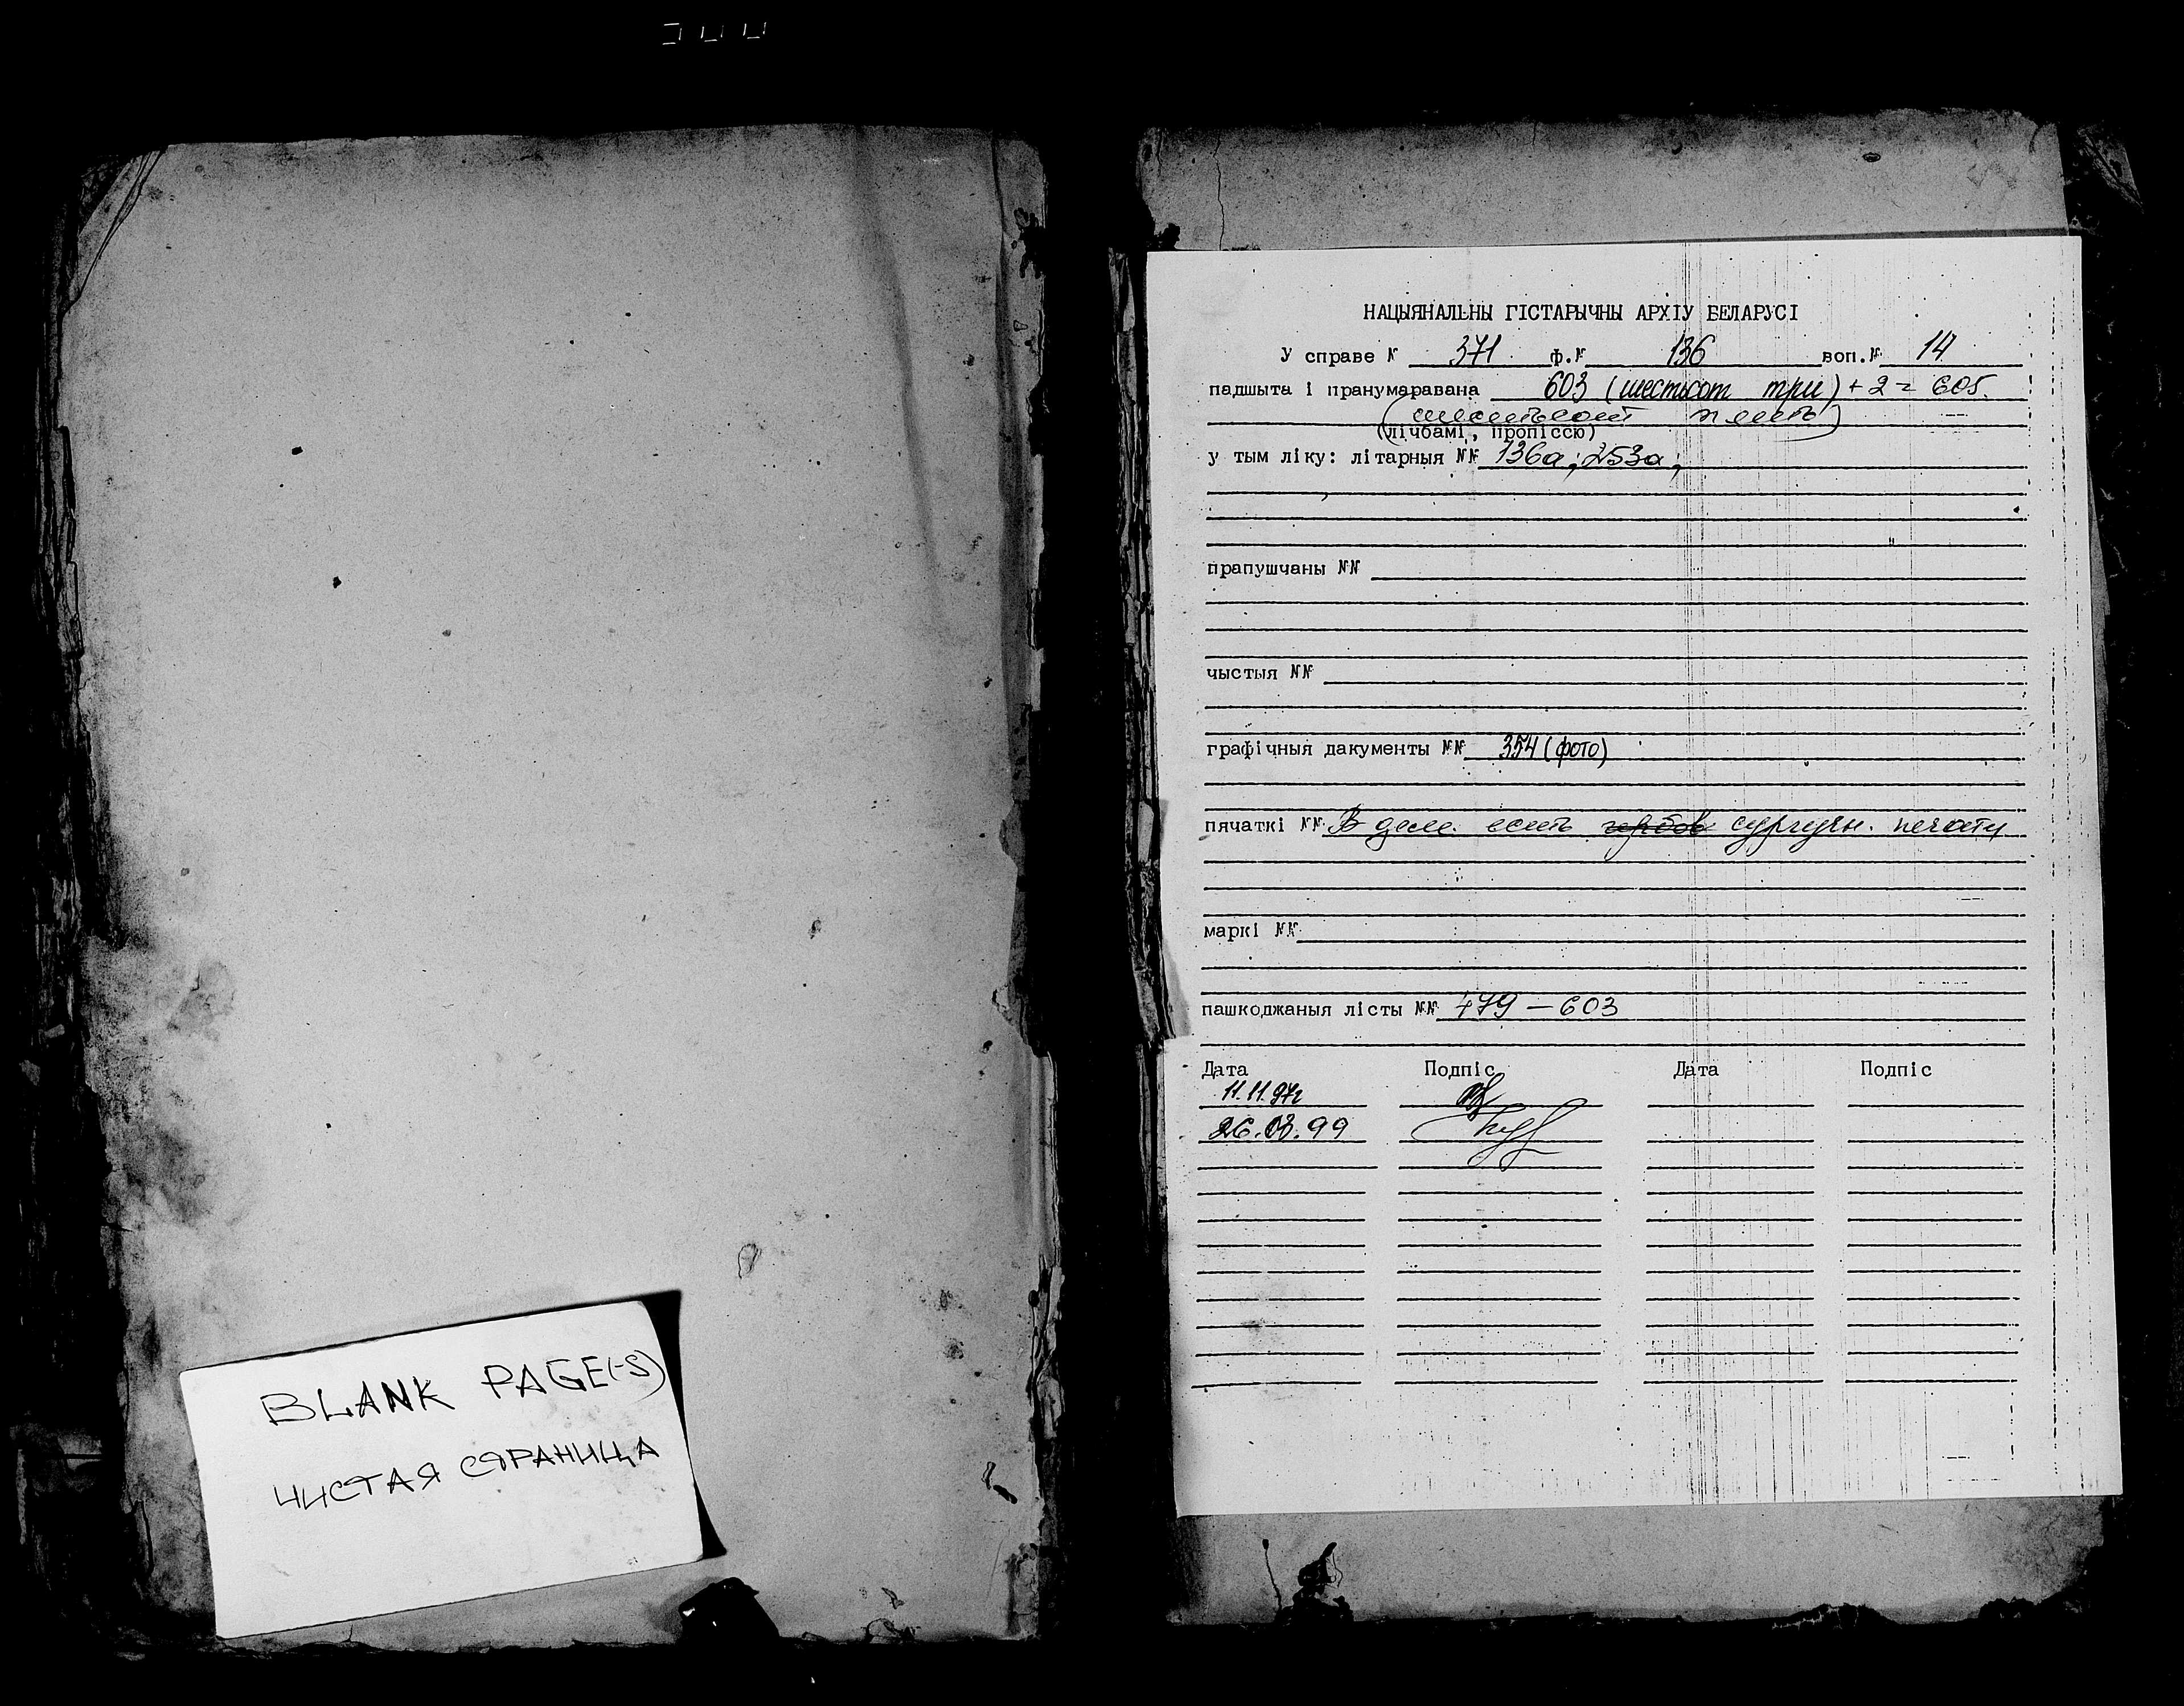 BLANK PAGE(-S)
ЧИСТАЯ СТРАНИЦА
НАЦЫЯНАЛЬНЫ ГІСТАРЫЧНЫ АРХІУ БЕЛАРУСІ
У справе № 371 ф.№ 136 воп.№ 14
падшыта і пранумаравана 603 (шестьсот три) + 2 = 605.
(шестьсот пять)
(лічбамі, пропіссю)
у тым ліку: літарныя №№ 136а; 253а;
прапушчаны №№
чыстыя №№
графічныя дакументы №№ 354 (фото)
пячаткі №№ В деле есть сургучн. печати
маркі №№
пашкоджаныя лісты №№ 479 — 603
Дата Подпіс Дата Подпіс
11.11.97г
26.03.99